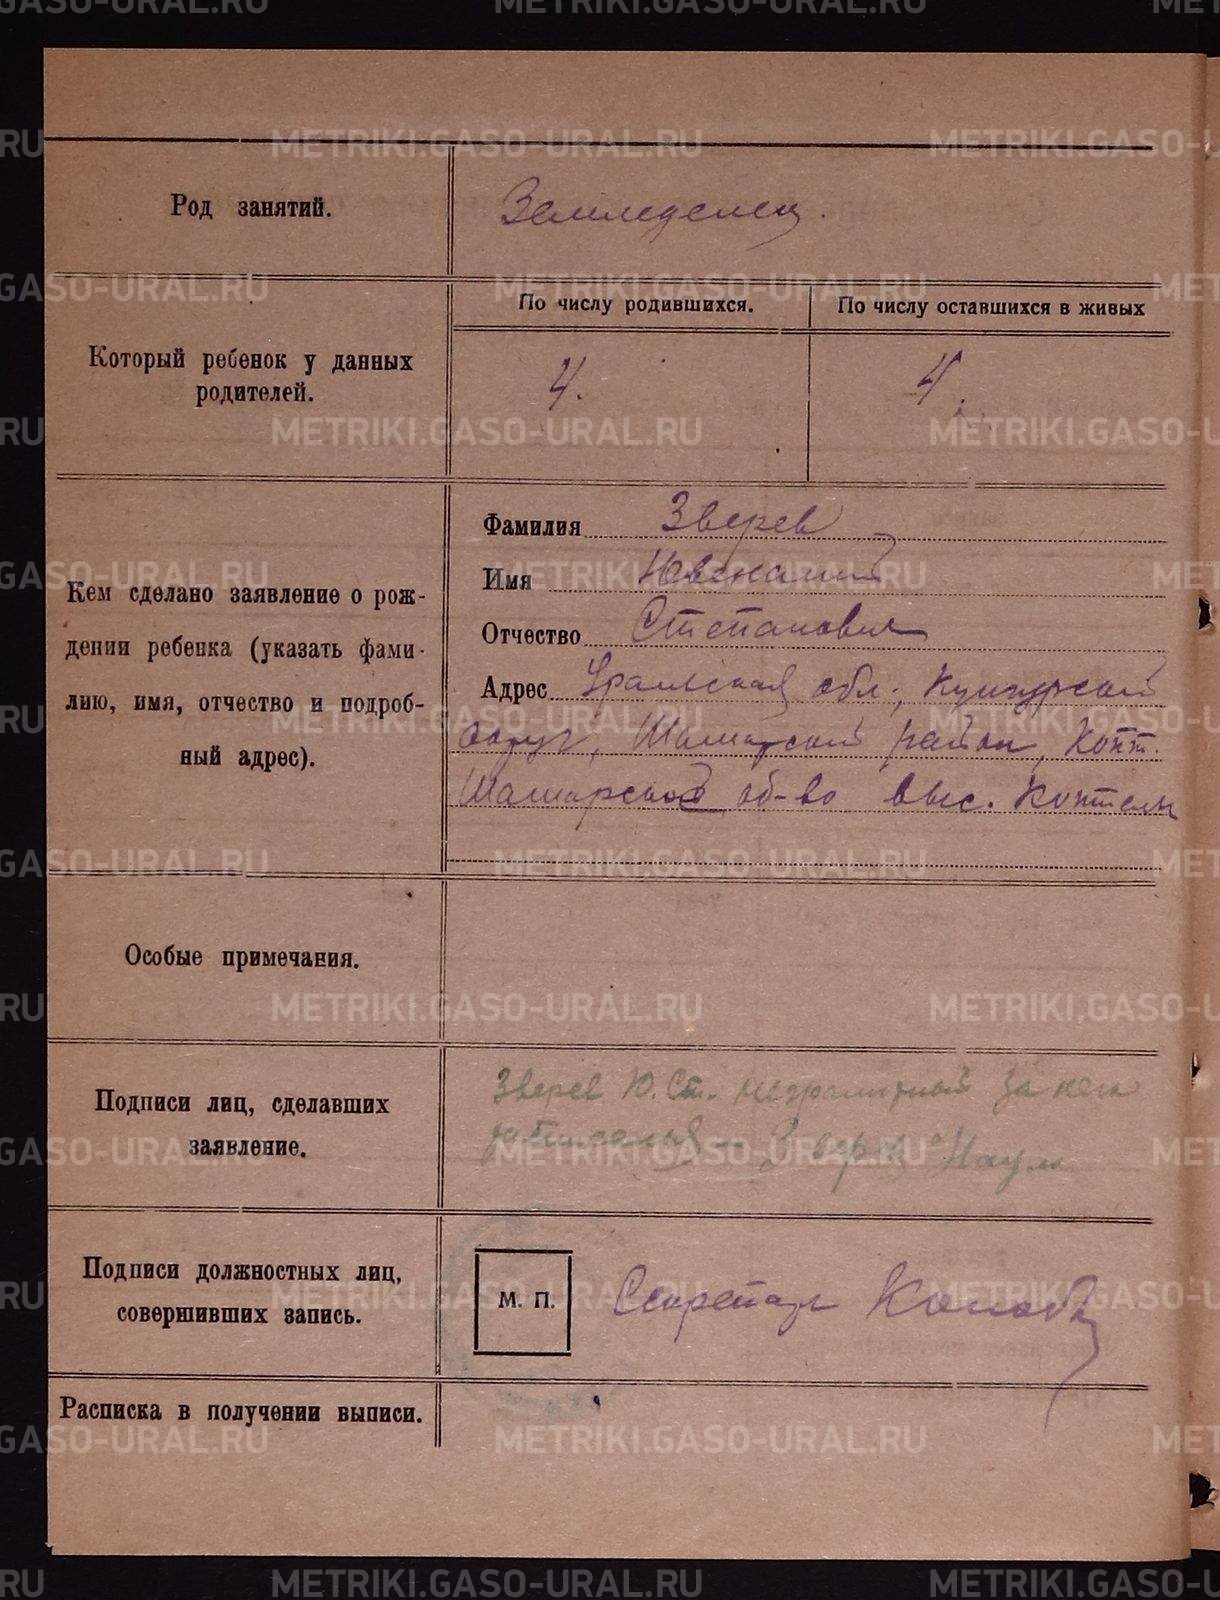 Род занятий. Земледелец.
По числу родившихся. По числу оставшихся в живых
Который ребенок у данных
родителей.
4. 4.
Фамилия Зверев
Имя Ювеналий
Отчество Степанович
Адрес Уральская обл., Кунгурский
округ, Шамарский район, Копт.
Шамарское об-во выс. Коптелы
Кем сделано заявление о рож-
дении ребенка (указать фами-
лию, имя, отчество и подроб-
ный адрес).
Особые примечания.
Подписи лиц, сделавших
заявление.
Зверев Ю. Ст. неграмотный За него
Зверев Наум
Подписи должностных лиц,
совершивших запись.
М. П. Секретарь
Расписка в получении выписи.
METRIKI.GASO-URAL.RU